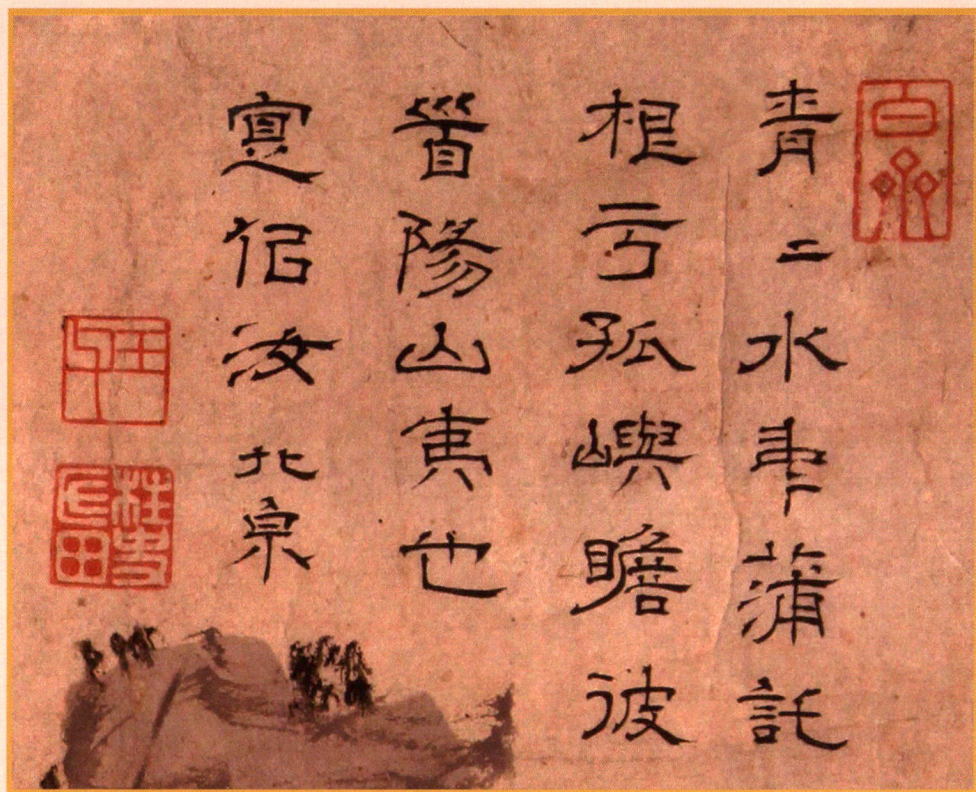 青二水中蒲託
根亏孤嶼瞻彼
首陽山夷也
寔侶汝